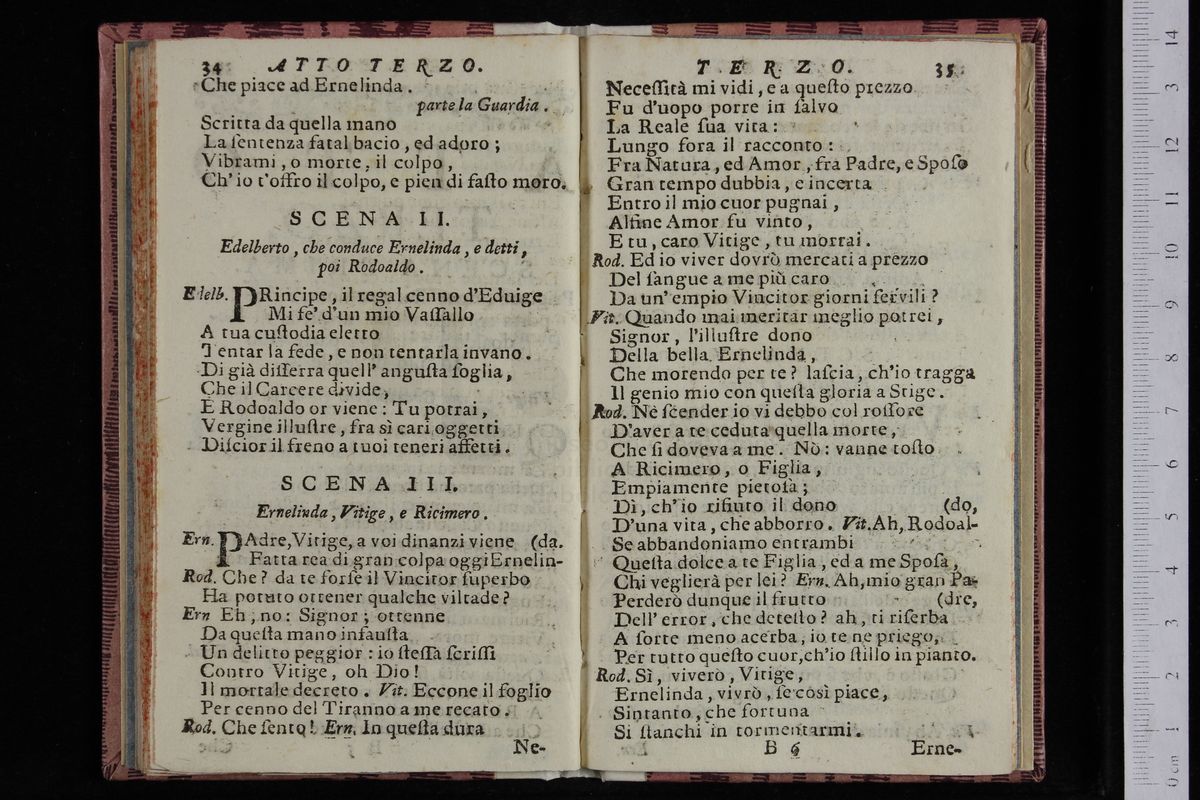 34 ATTO TERZO.
Che piace ad Ernelinda.
parte la Guardia.
Scritta da quella mano
La ſentenza fatal bacio, ed adoro;
Vibrami, o morte, il colpo,
Ch' io t'offro il colpo, e pien di faſto moro.
SCENA II.
Edelberto, che conduce Ernelinda, e detti,
poi Rodoaldo.
Edelb. PRincipe, il regal cenno d'Eduige
Mi fe' d'un mio Vaſſallo
A tua cuſtodia eletto
Tentar la fede, e non tentarla invano.
Di già diſſerra quell' anguſta ſoglia,
Che il Carcere divide,
E Rodoaldo or viene: Tu potrai,
Vergine illuſtre, fra sì cari oggetti
Diſcior il freno a tuoi teneri affetti.
SCENA III.
Ernelinda, Vitige, e Ricimero.
Ern. PAdre, Vitige, a voi dinanzi viene (da.
Fatta rea di gran colpa oggi Ernelin-
Rod. Che? da te forſe il Vincitor ſuperbo
Ha potuto ottener qualche viltade?
Ern Eh, no: Signor; ottenne
Da queſta mano infauſta
Un delitto peggior: io ſteſſa ſcriſſi
Contro Vitige, oh Dio!
Il mortale decreto. Vit. Eccone il foglio
Per cenno del Tiranno a me recato.
Rod. Che ſento! Ern. In queſta dura
Ne-
TERZO. 35
Neceſſità mi vidi, e a queſto prezzo
Fu d'uopo porre in ſalvo
La Reale ſua vita:
Lungo fora il racconto:
Fra Natura, ed Amor, fra Padre, e Spoſo
Gran tempo dubbia, e incerta
Entro il mio cuor pugnai,
Alfine Amor fu vinto,
E tu, caro Vitige, tu morrai.
Rod. Ed io viver dovrò mercati a prezzo
Del ſangue a me più caro
Da un' empio Vincitor giorni ſervili?
Vit. Quando mai meritar meglio potrei,
Signor, l'illuſtre dono
Della bella Ernelinda,
Che morendo per te? laſcia, ch'io tragga
Il genio mio con queſta gloria a Stige.
Rod. Nè ſcender io vi debbo col roſſore
D'aver a te ceduta quella morte,
Che ſi doveva a me. Nò: vanne toſto
A Ricimero, o Figlia,
Empiamente pietoſa;
Dì, ch' io rifiuto il dono (do,
D'una vita, che abborro. Vit. Ah, Rodoal-
Se abbandoniamo entrambi
Queſta dolce a te Figlia, ed a me Spoſa,
Chi veglierà per lei? Ern. Ah, mio gran Pa-
Perderò dunque il frutto (dre,
Dell' error, che deteſto? ah, ti riſerba
A ſorte meno acerba, io te ne priego,
Per tutto queſto cuor, ch'io ſtillo in pianto.
Rod. Sì, viverò, Vitige,
Ernelinda, vivrò, ſe così piace,
Sintanto, che fortuna
Si ſtanchi in tormentarmi.
B 6 Erne-